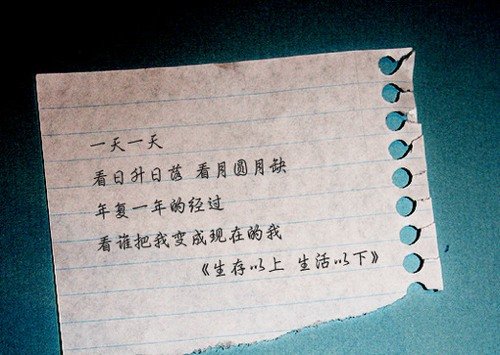 一天一天
看日升日落 看月圆月缺
年复一年的经过
看谁把我变成现在的我
《生存以上 生活以下》